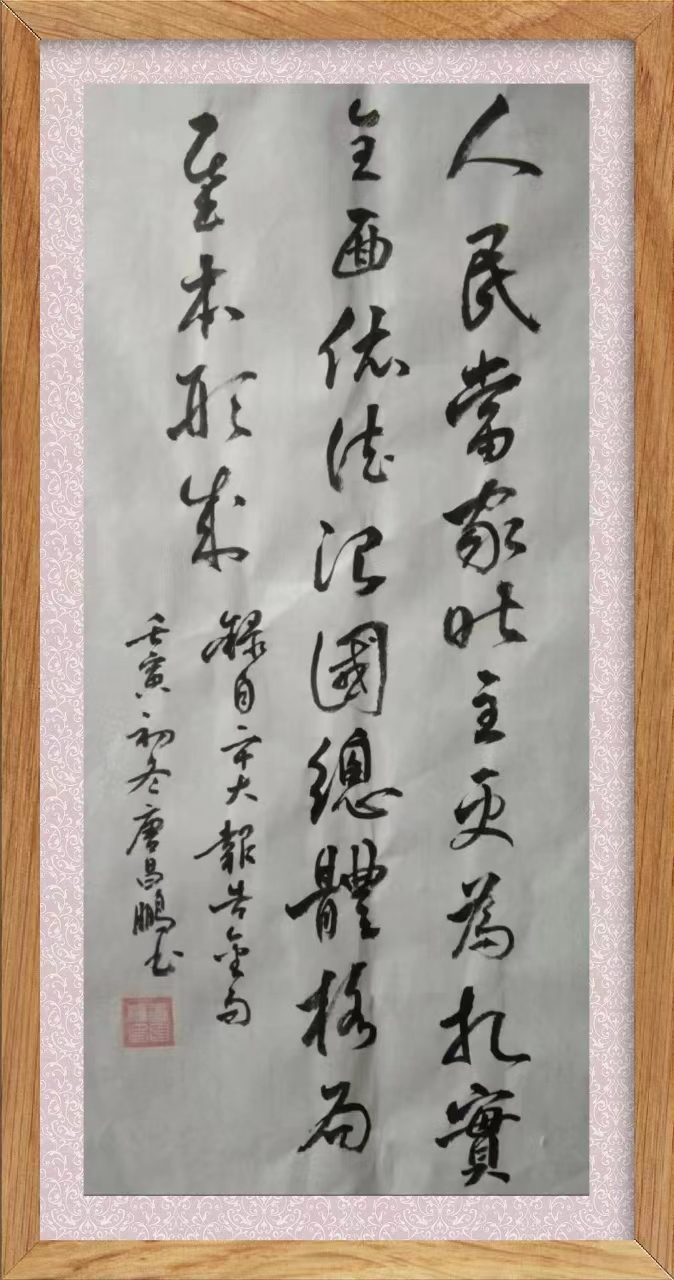 人民當家作主更為扎實
全面依法治國總體格局
基本形成
錄自二十大報告金句
壬寅初冬唐昌鵬书